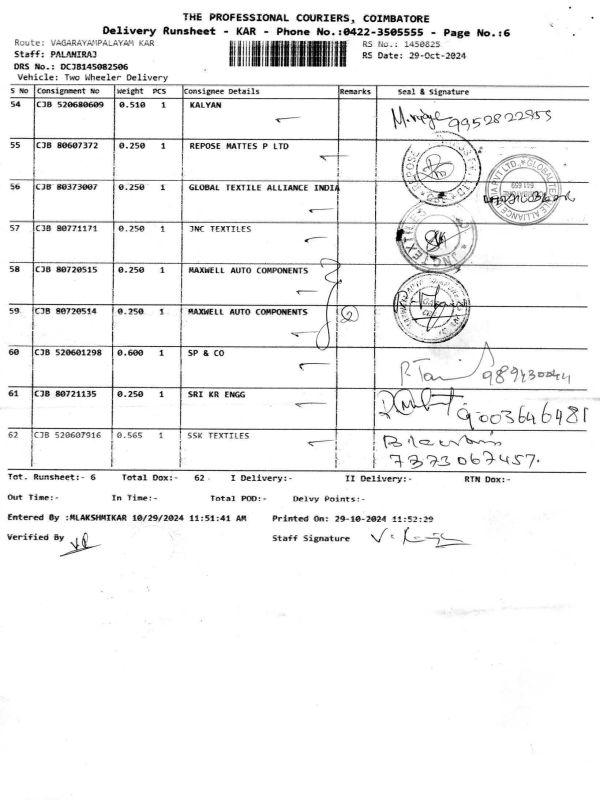 THE PROFESSIONAL COURIERS, COIMBATORE
Delivery Runsheet - KAR - Phone No.:0422-3505555 - Page No.:6
Route: VAGARAYAMPALAYAM KAR RS No.: 1450825
Staff: PALANIRAJ RS Date: 29-Oct-2024
DRS No.: DCJB145082506
Vehicle: Two Wheeler Delivery
S No Consignment No Weight PCS Consignee Details Remarks Seal & Signature
54 CJB 520680609 0.510 1 KALYAN 9952822953
55 CJB 80607372 0.250 1 REPOSE MATTES P LTD
56 CJB 80373007 0.250 1 GLOBAL TEXTILE ALLIANCE INDIA
57 CJB 80771171 0.250 1 JNC TEXTILES
58 CJB 80720515 0.250 1 MAXWELL AUTO COMPONENTS
59 CJB 80720514 0.250 1 MAXWELL AUTO COMPONENTS 2
60 CJB 520601298 0.600 1 SP & CO 9894930044
61 CJB 80721135 0.250 1 SRI KR ENGG 9003646481
62 CJB 520607916 0.565 1 SSK TEXTILES
7373067457.
Tot. Runsheet:- 6 Total Dox:- 62 I Delivery:- II Delivery:- RTN Dox:-
Out Time:- In Time:- Total POD:- Delvy Points:-
Entered By :MLAKSHMIKAR 10/29/2024 11:51:41 AM Printed On: 29-10-2024 11:52:29
Verified By Staff Signature